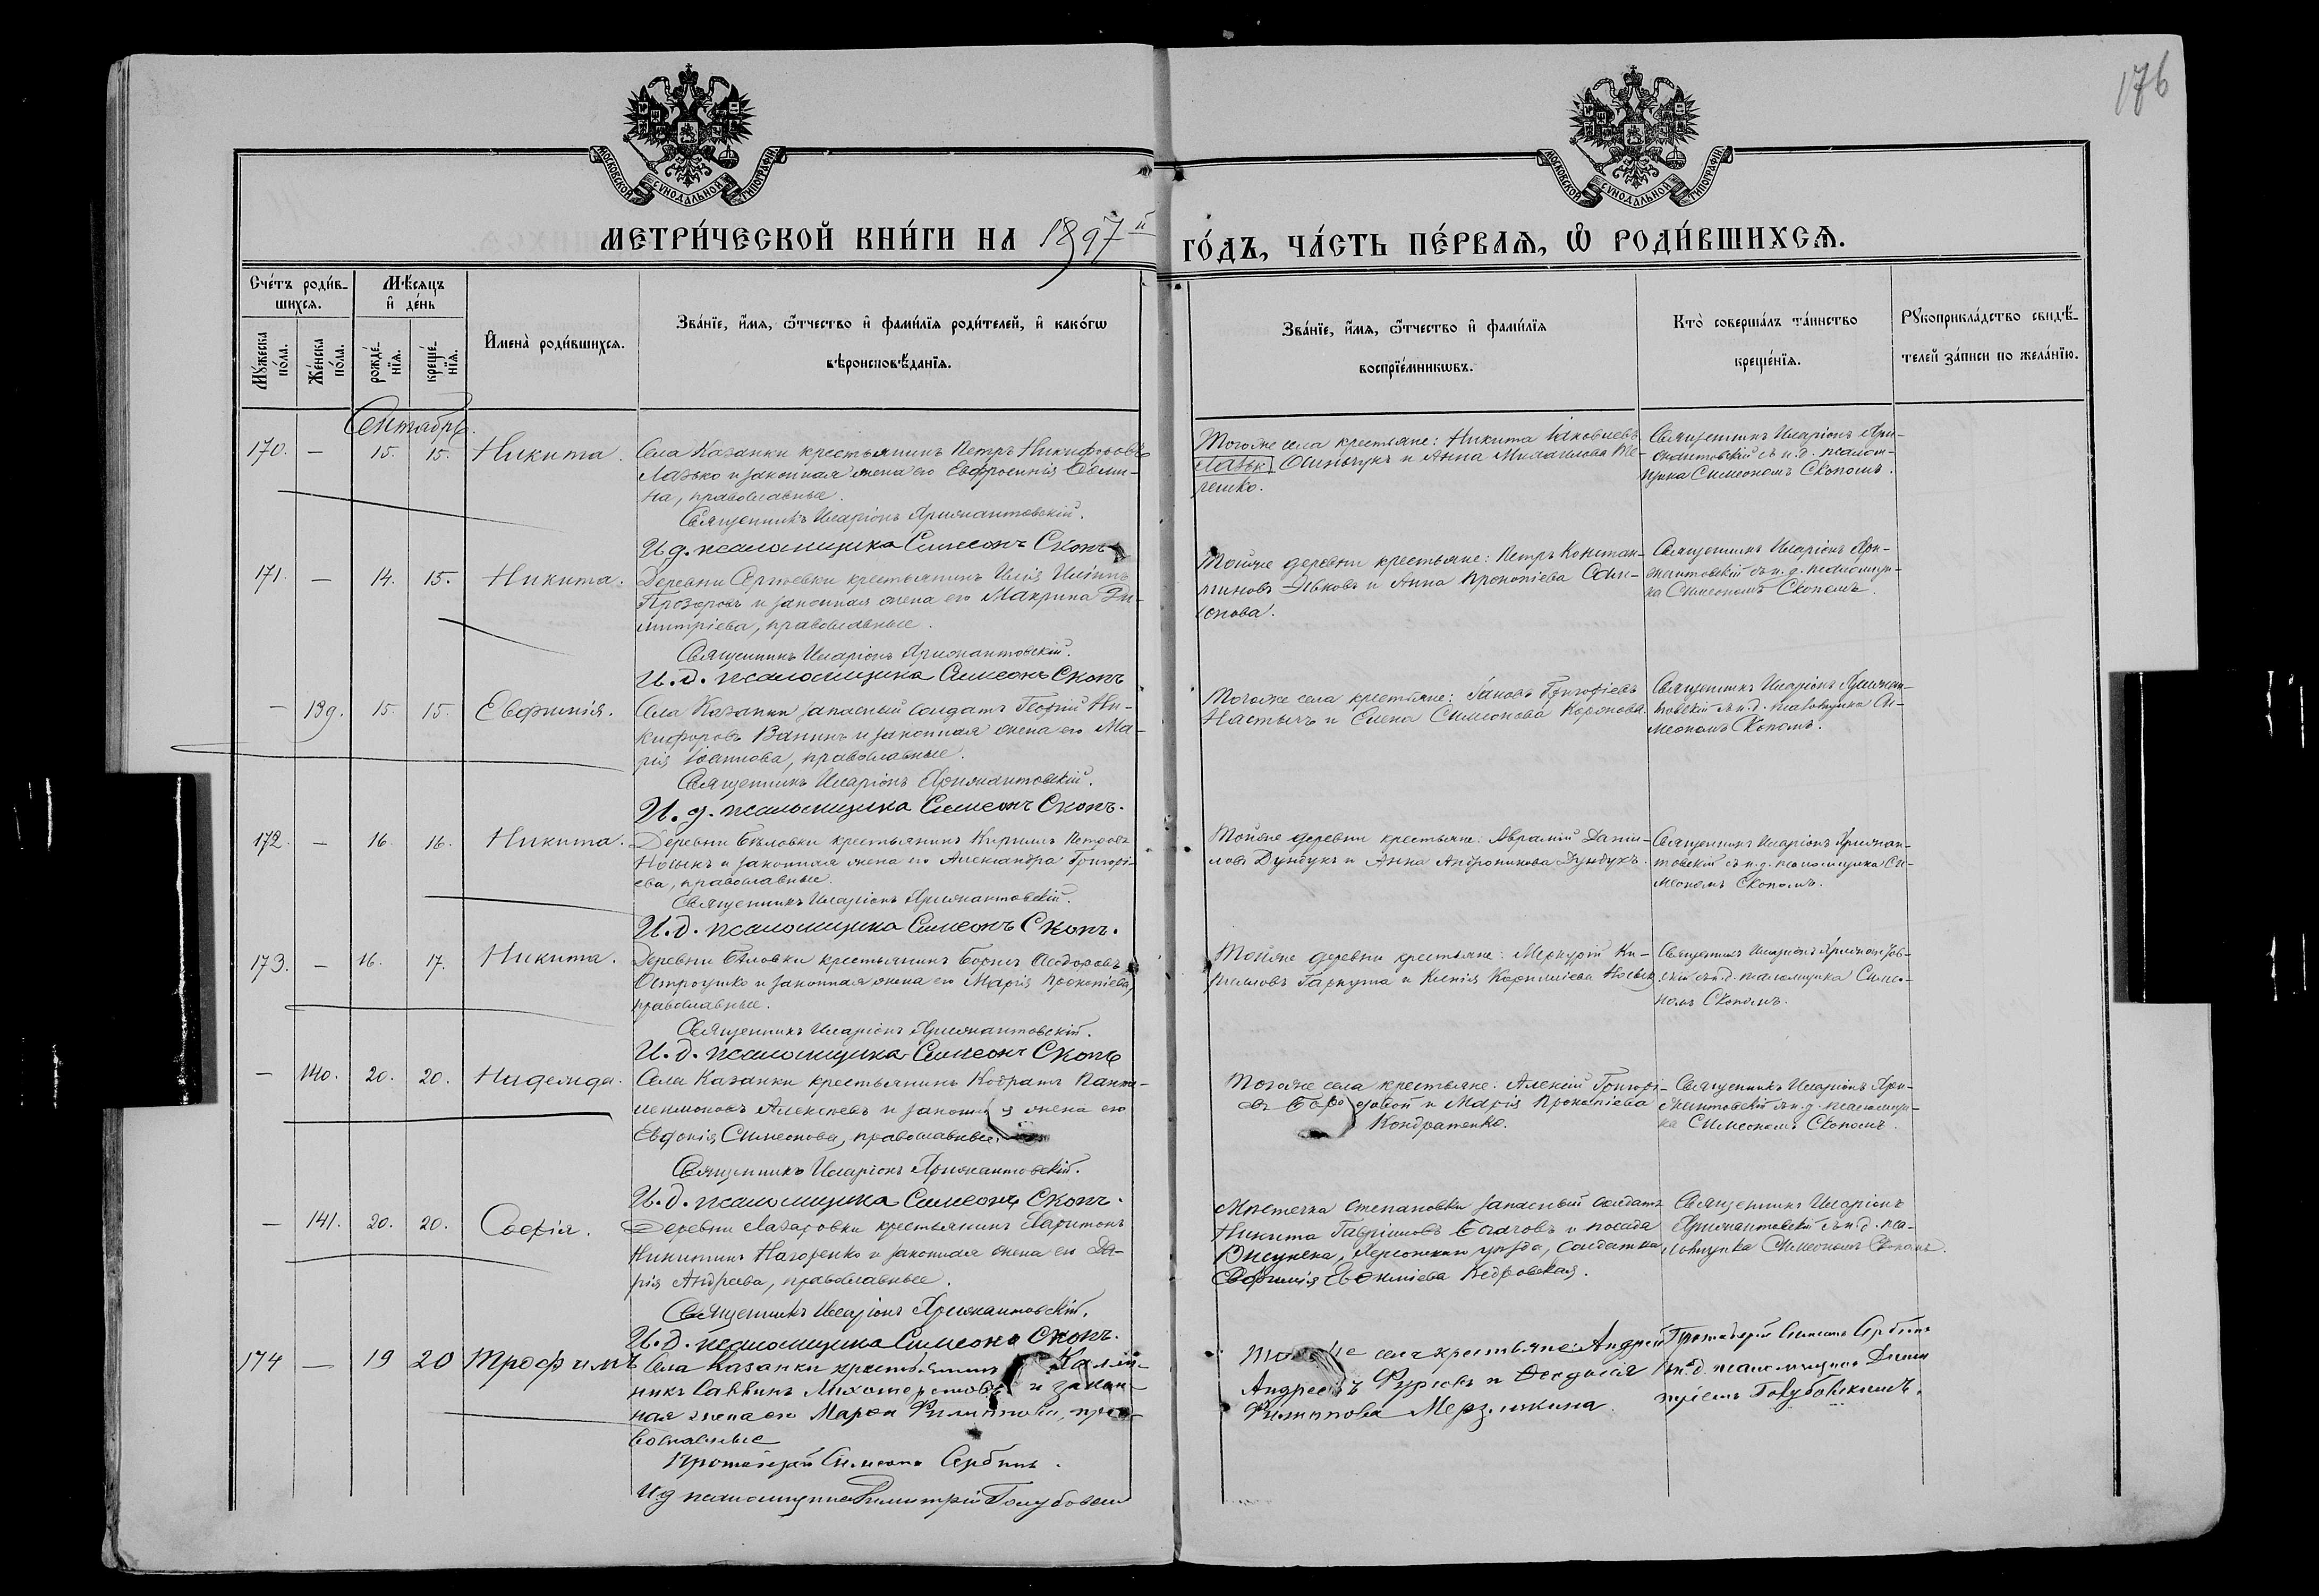 176
МОСКОВСКОЙ СУНОДАЛЬНОЙ ТИПОГРАФІИ
МОСКОВСКОЙ СУНОДАЛЬНОЙ ТИПОГРАФІИ
МЕТРИ́ЧЕСКОЙ КНИ́ГИ НА 1897й ГО́ДЪ, ЧА́СТЬ ПЕ́РВАѦ, Ѡ҆ РОДИ́ВШИХСѦ.
Сче́тъ роди́в-
шихсѧ.
Мꙋ́жеска по́ла.
Же́нска по́ла.
Мѣ́сѧцъ
и҆ де́нь
рожде́-
нїѧ.
креще́-
нїѧ.
И҆мена̀ роди́вшихсѧ.
Зва́нїе, и҆́мѧ, ѻ҆́тчество и҆ фами́лїѧ роди́телей, и҆ како́гѡ
вѣроисповѣ́данїѧ.
Зва́нїе, и҆́мѧ, ѻ҆́тчество и҆ фами́лїѧ
воспрїе́мникѡвъ.
Кто̀ соверша́лъ та́инство
креще́нїѧ.
Рꙋкоприкла́дство свидѣ́-
телей за́писи по жела́нїю.
Сентябрь.
170. — 15. 15. Никита.
Села Казанки крестьянинъ Петръ Никифоровъ
Лазько и законная жена его Евфросинія
на, православные.
Священникъ Иларіонъ Крижантовскій.
И д. псаломщика Симеонъ Скопъ
Тогоже села крестьяне: Никита Іаковлевъ
Лазьк Осипчукъ и Анна Михаилова Те-
решко.
Священникъ Иларіонъ Кри-
жантовскій съ и.д. псалом-
щика Симеономъ Скопомъ.
171. — 14. 15. Никита.
Деревни Сергѣевки крестьянинъ Илія Иліинъ
Прозоровъ и законная жена его Макрина Ди-
митріева, православные.
Священникъ Иларіонъ Крижантовскій.
И. д. псаломщика Симеонъ Скопъ
Тойже деревни крестьяне: Петръ Констан-
тиновъ и Анна Прокопіева Сам-
сонова.
Священникъ Иларіонъ Кри-
жантовскій съ и. д. псаломщи-
ка Симеономъ Скопомъ.
— 139. 15. 15. Евфимія.
Села Казанки запасный солдатъ Георгій Ни-
кифоровъ Ванинъ и законная жена его Ма-
рія Іоаннова, православные.
Священникъ Иларіонъ Крижантовскій.
И. д. псаломщика Симеонъ Скопъ.
Тогоже села крестьяне: Іаковъ Григоріевъ
Настычъ и Елена Симеонова
Священникъ Иларіонъ Крижан-
товскій съ и.д. псаломщика Си-
меономъ Скопомъ.
172. — 16. 16. Никита.
Деревни Бѣловки крестьянинъ Кириллъ Петровъ
Носыкъ и законная жена его Александра Григорі-
ева, православные.
Священникъ Иларіонъ Крижантовскій.
И. д. псаломщика Симеонъ Скопъ.
Тойже деревни крестьяне: Авраамій Дани-
ловъ Дундукъ и Анна Андроникова Дундукъ.
Священникъ Иларіонъ Крижан-
товскій съ и.д. псаломщика Си-
меономъ Скопомъ.
173. — 16. 17. Никита.
Деревни Бѣловки крестьянинъ Борисъ Ѳеодоровъ
Остроушко и законная жена его Марія Прокопіева,
православные.
Священникъ Иларіонъ Крижантовскій.
И. д. псаломщика Симеонъ Скопъ
Тойже деревни крестьяне: Меркурій Ки-
рилловъ Гаркуша и Ксенія Корниліева Носыкъ
Священникъ Иларіонъ Крижантов-
скій съ и.д. псаломщика Симео-
номъ Скопомъ.
— 140. 20. 20. Надежда.
Села Казанки крестьянинъ Кодратъ Панте-
леимоновъ Алексѣевъ и законная жена его
Евдокія Симеонова, православные.
Священникъ Иларіонъ Крижантовскій.
И. д. псаломщика Симеонъ Скопъ.
Тогоже села крестьяне: Алексій Григорі-
евъ и Марія Прокопіева
Кондратенко.
Священникъ Иларіонъ Кри-
жантовскій съ и.д. псаломщи-
ка Симеономъ Скопомъ.
— 141. 20. 20. Софія.
Деревни Лазаровки крестьянинъ Харитонъ
Никитинъ Назоренко и законная жена его Да-
рія Андреева, православные.
Священникъ Иларіонъ Крижантовскій.
И. д. псаломщика Симеонъ Скопъ.
Мѣстечка Степановки запасный солдатъ
Никита Гавріиловъ и посада
Висунска, Херсонскаго уѣзда, солдатка
Евфимія Евфиміева Кедровская.
Священникъ Иларіонъ
Крижантовскій съ и.д. пса-
ломщика Симеономъ Скопомъ.
174 — 19 20 Трофимъ
Села Казанки крестьянинъ Калин-
никъ Саввинъ и закон-
ная жена его Марѳа Филиппова, пра-
вославные
Протоіерей Симеонъ Сербинъ.
И д псаломщика Димитрій Голубовскій
Тогоже села крестьяне: Андрей
Андреевъ Фурсовъ и Ѳеодосія
Филиппова Мерзликина.
Протоіерей Симеонъ Сербинъ
съ и.д. псаломщика Дими
тріемъ Голубовскимъ.